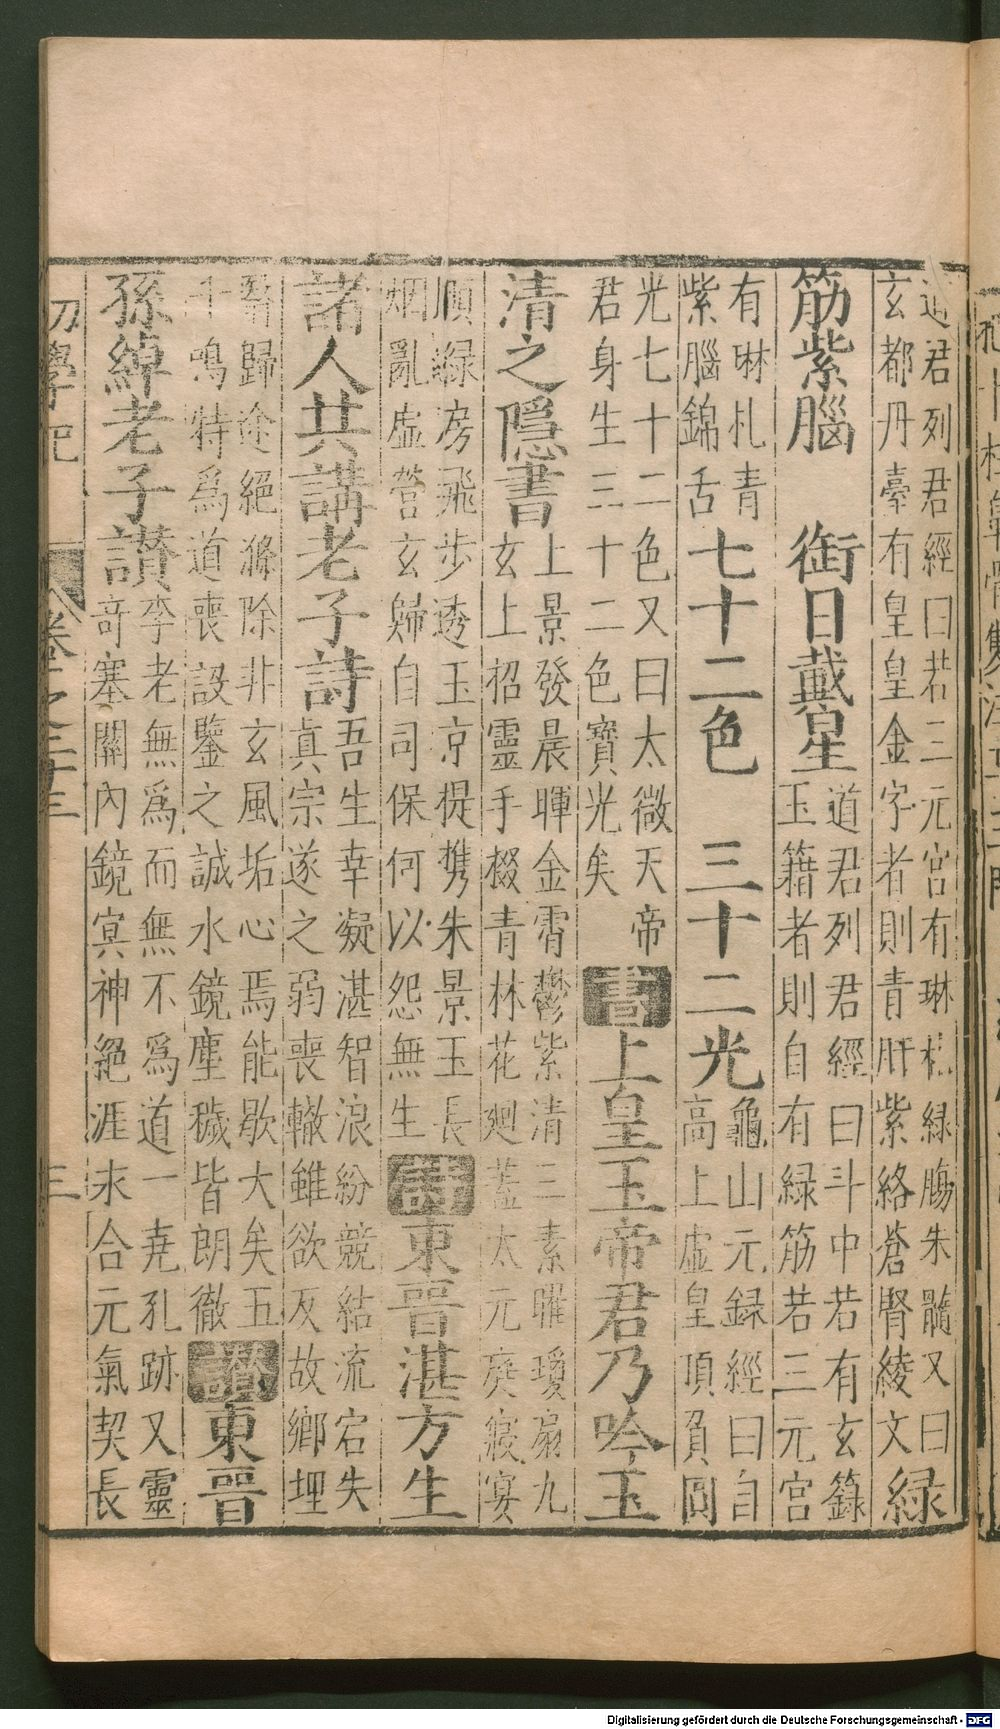 道君列君經曰若三元宮有琳札綠腸朱髓又曰
玄都丹臺有皇皇金字者則青肝紫絡蒼腎綾文綠
筋紫腦 銜日戴星道君列君經曰斗中若有玄籙
玉籍者則自有綠筋若三元宮
有琳札青
紫腦錦舌七十二色 三十二光龜山元録經曰自
高上虛皇頂負圓
光七十二色又曰太微天帝
君身生三十二色寶光矣書上皇玉帝君乃吟玉
清之隱書上景發晨暉金霄鬱紫清三素曜瓊扇九
玄上招靈手掇青林花廻蓋太元庭寢宴
順緑房飛步透玉京提携朱景玉長
烟亂虛營玄歸自司保何以怨無生詩東晉湛方生
諸人共講老子詩吾生幸凝湛智浪紛競結流宕失
真宗遂之弱喪轍雖欲反故鄉埋
翳歸途絕滌除非玄風垢心焉能歇大矣五
千鳴特爲道喪設鑒之誠水鏡塵穢皆朗徹讃東晉
孫綽老子讃李老無爲而無不爲道一堯孔跡又靈
奇塞關內鏡㝠神絕涯未合元氣契長
初學記 卷之二十三 三
Digitalisierung gefördert durch die Deutsche Forschungsgemeinschaft - DFG